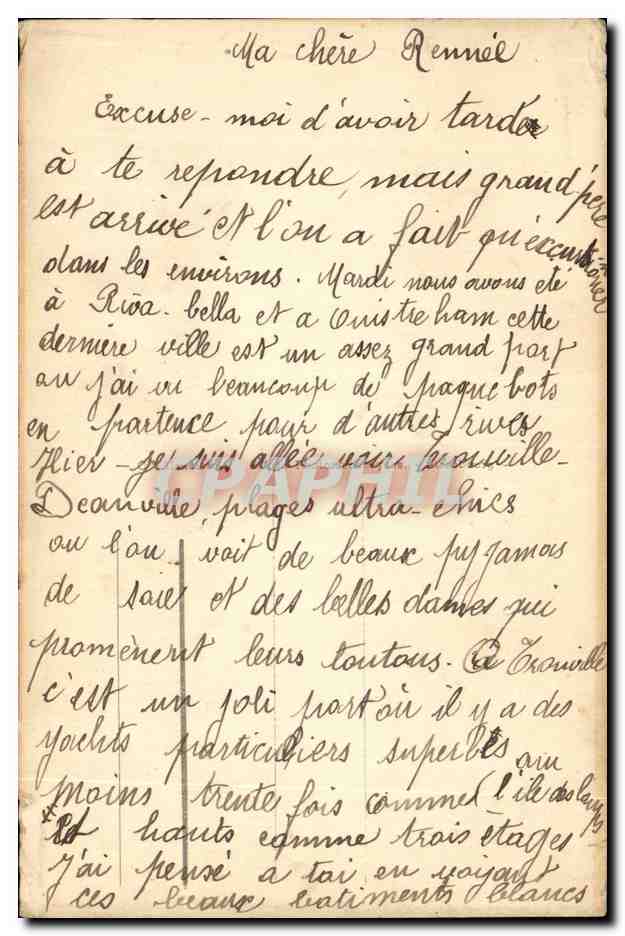 Ma chère Rennée
Excuse-moi d'avoir tarder
à te repondre, mais grand'père
est arrivé et l'on a fait qu'excursionner
dans les environs. Mardi nous avons été
à Riva-bella et a Ouistreham cette
dernière ville est un assez grand port
ou j'ai vu beaucoup de paquebots
en partence pour d'autres rives
Hier - je suis allée voir Trouville-
Deauville, plages ultra-chics
ou l'on voit de beaux pyjamas
de soie et des belles dames qui
promènent leurs toutous. A Trouville
c'est un joli port où il y a des
yachts particuliers superbes au
moins trente fois comme (l'ile des loups
et hauts comme trois étages-
J'ai pensé a toi en voyant
ces beaux batiments blancs
CPAPHIL